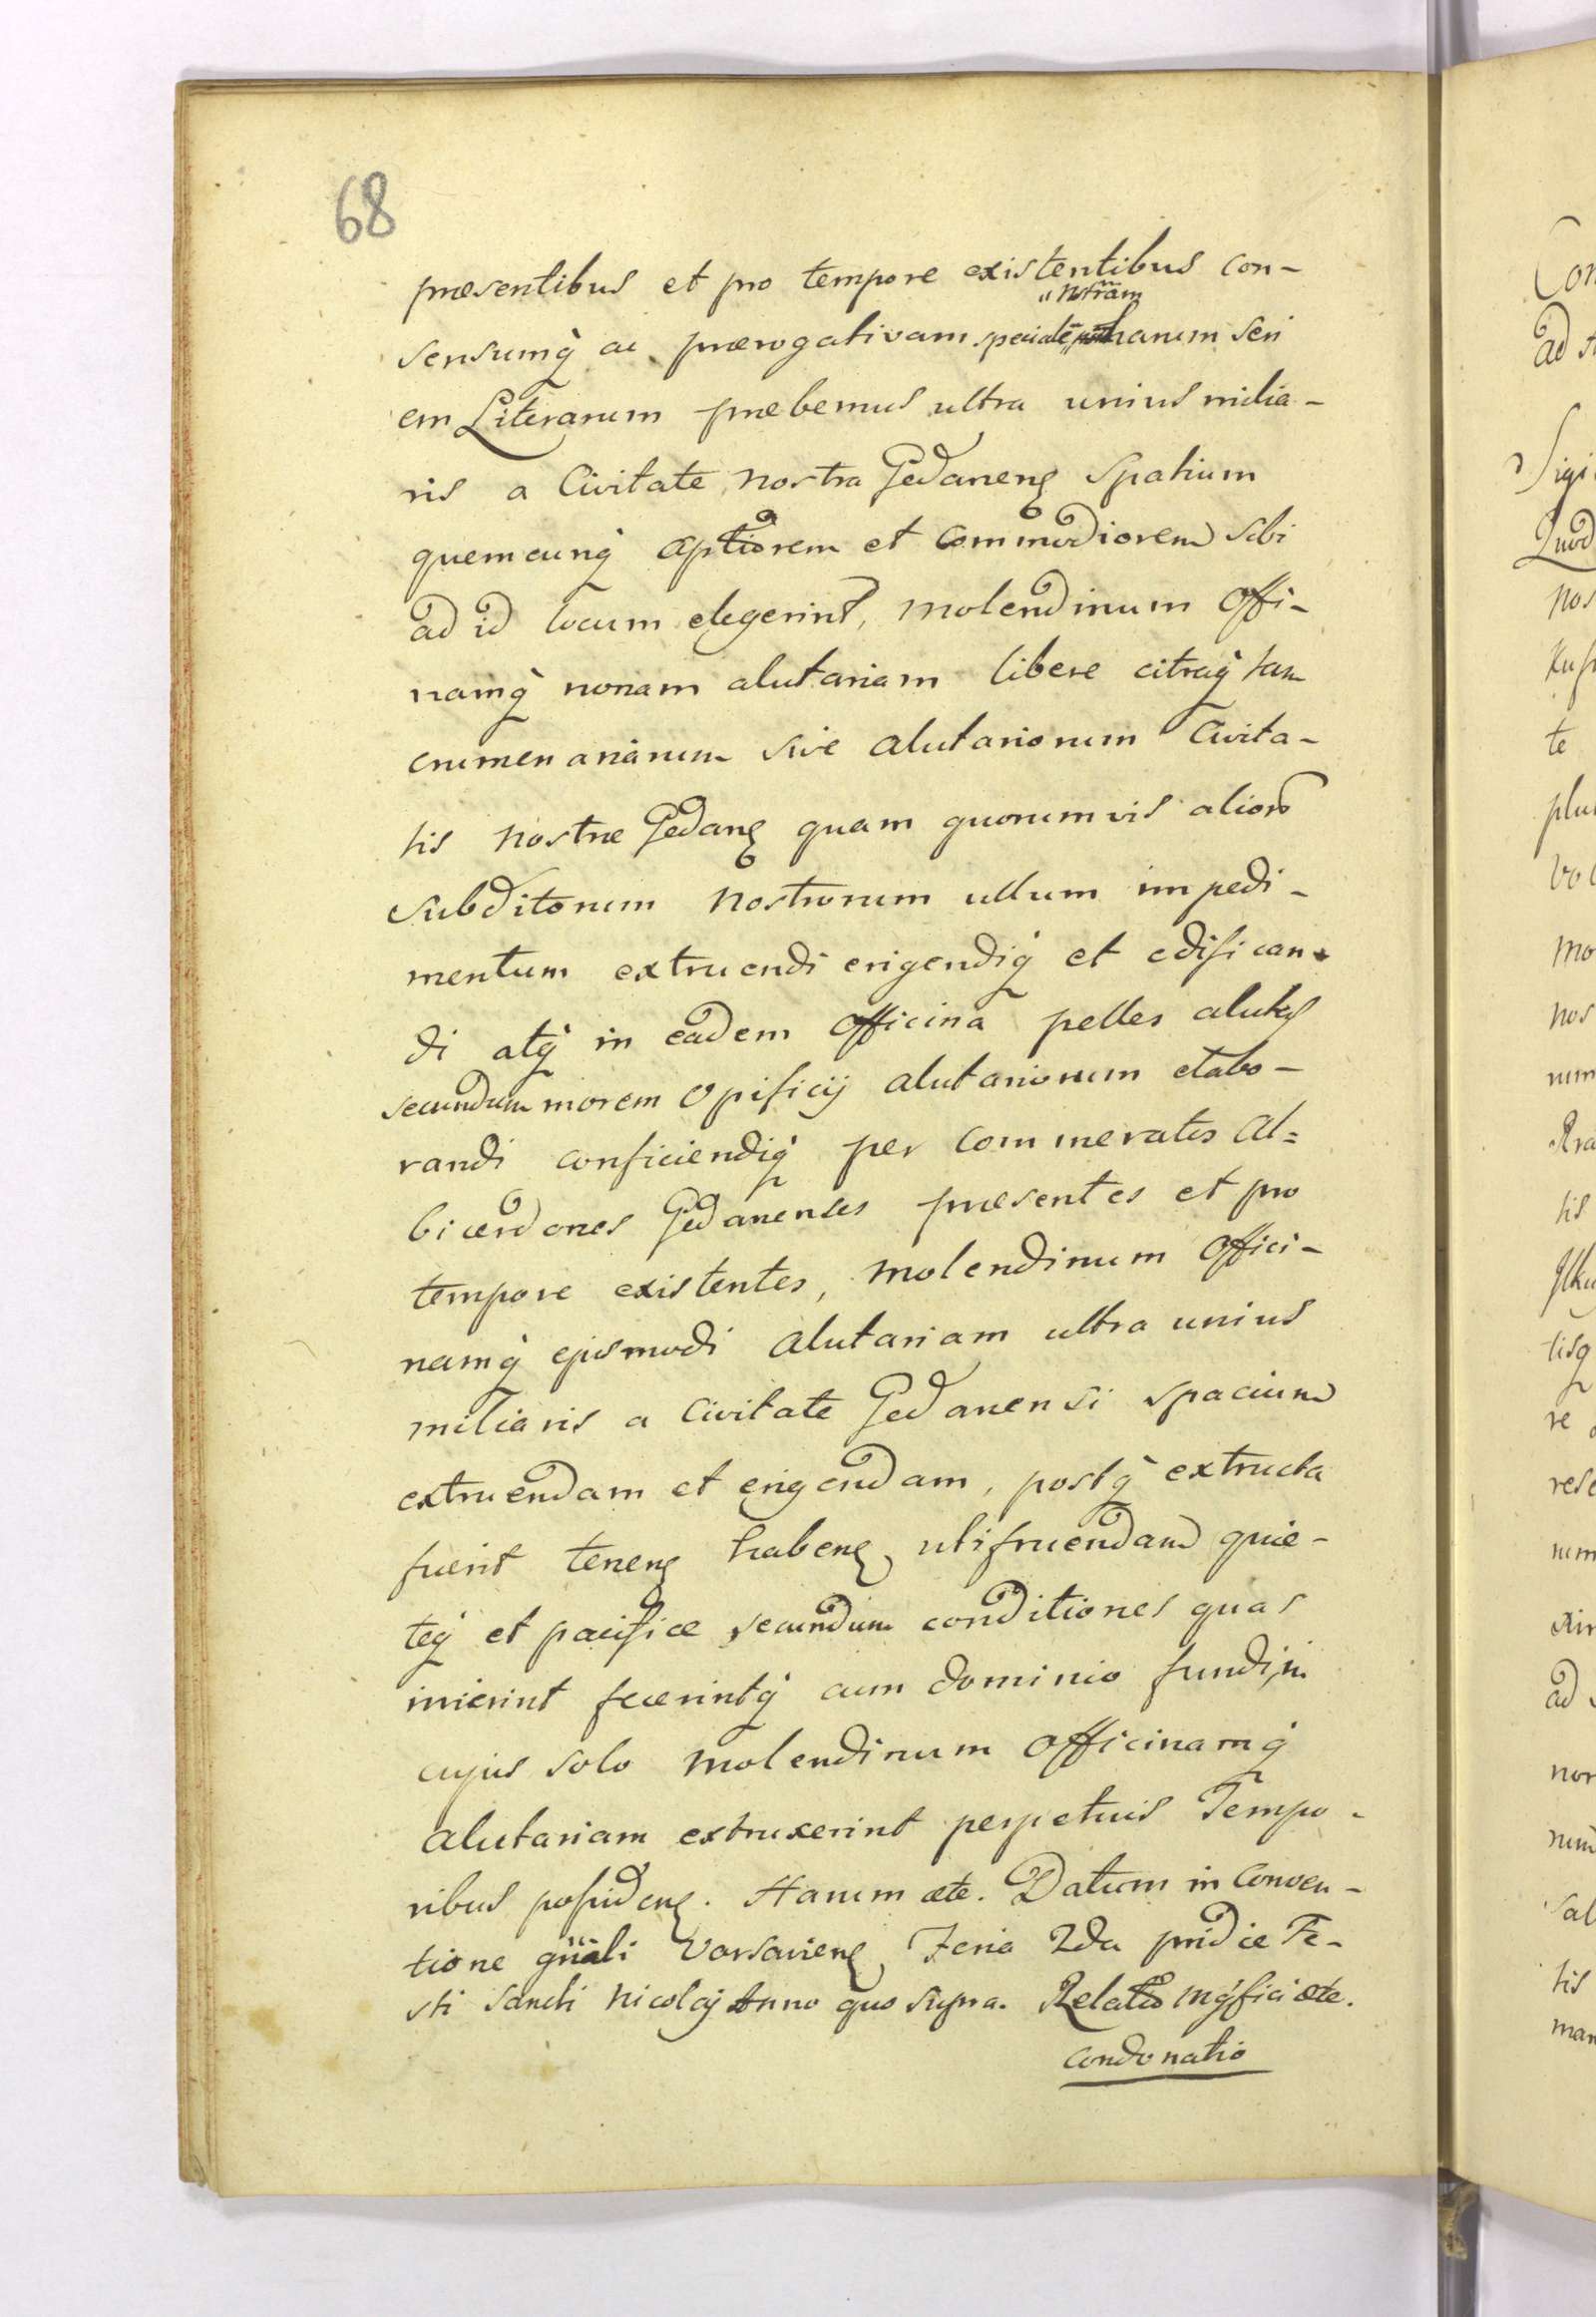 68
præsentibus et pro tempore existentibus con-
" nstram
sensumq ac prærogativam speciale harum seri
em Literarum præbemus ultra unius milia-
ris a Civitate nostra Gedanens Spatium
quemcunq aptiorem et Commodiorem sibi
ad id locum elegerint, molendinum Offi-
namq novam alutariam libere citraq tam
crumenariarum sive alutariorum Civita-
tis nostræ Gedans quam quorumvis alior
subditorum nostrorum ullum impedi-
mentum extruendi erigendiq et edifican-
di atq in eadem Officina pelles alutas
secundum morem Opificij alutariorum elabo-
randi conficiendiq per commeratos Al=
bicerdones Gedanenses præsentes et pro
tempore existentes, molendinum Offici-
namq ejusmodi alutariam ultra unius
miliaris a Civitate Gedanensi spacium
extruendam et erigendam, postq extructa
fuerit tenens habens utifruendam quie-
teq et pacifice secundum conditiones quas
inierint fecerintq cum dominio fundi, in
cujus solo molendinum Officinamq
alutariam extruxerint perpetuis Tempo-
ribus possidens. Harum ete. Datum in Conven-
tione gnali Varsaviens Feria 2da pridie Fe-
sti Sancti Nicolaj Anno quo supra. Relatio mgfici ete.
Condonatio